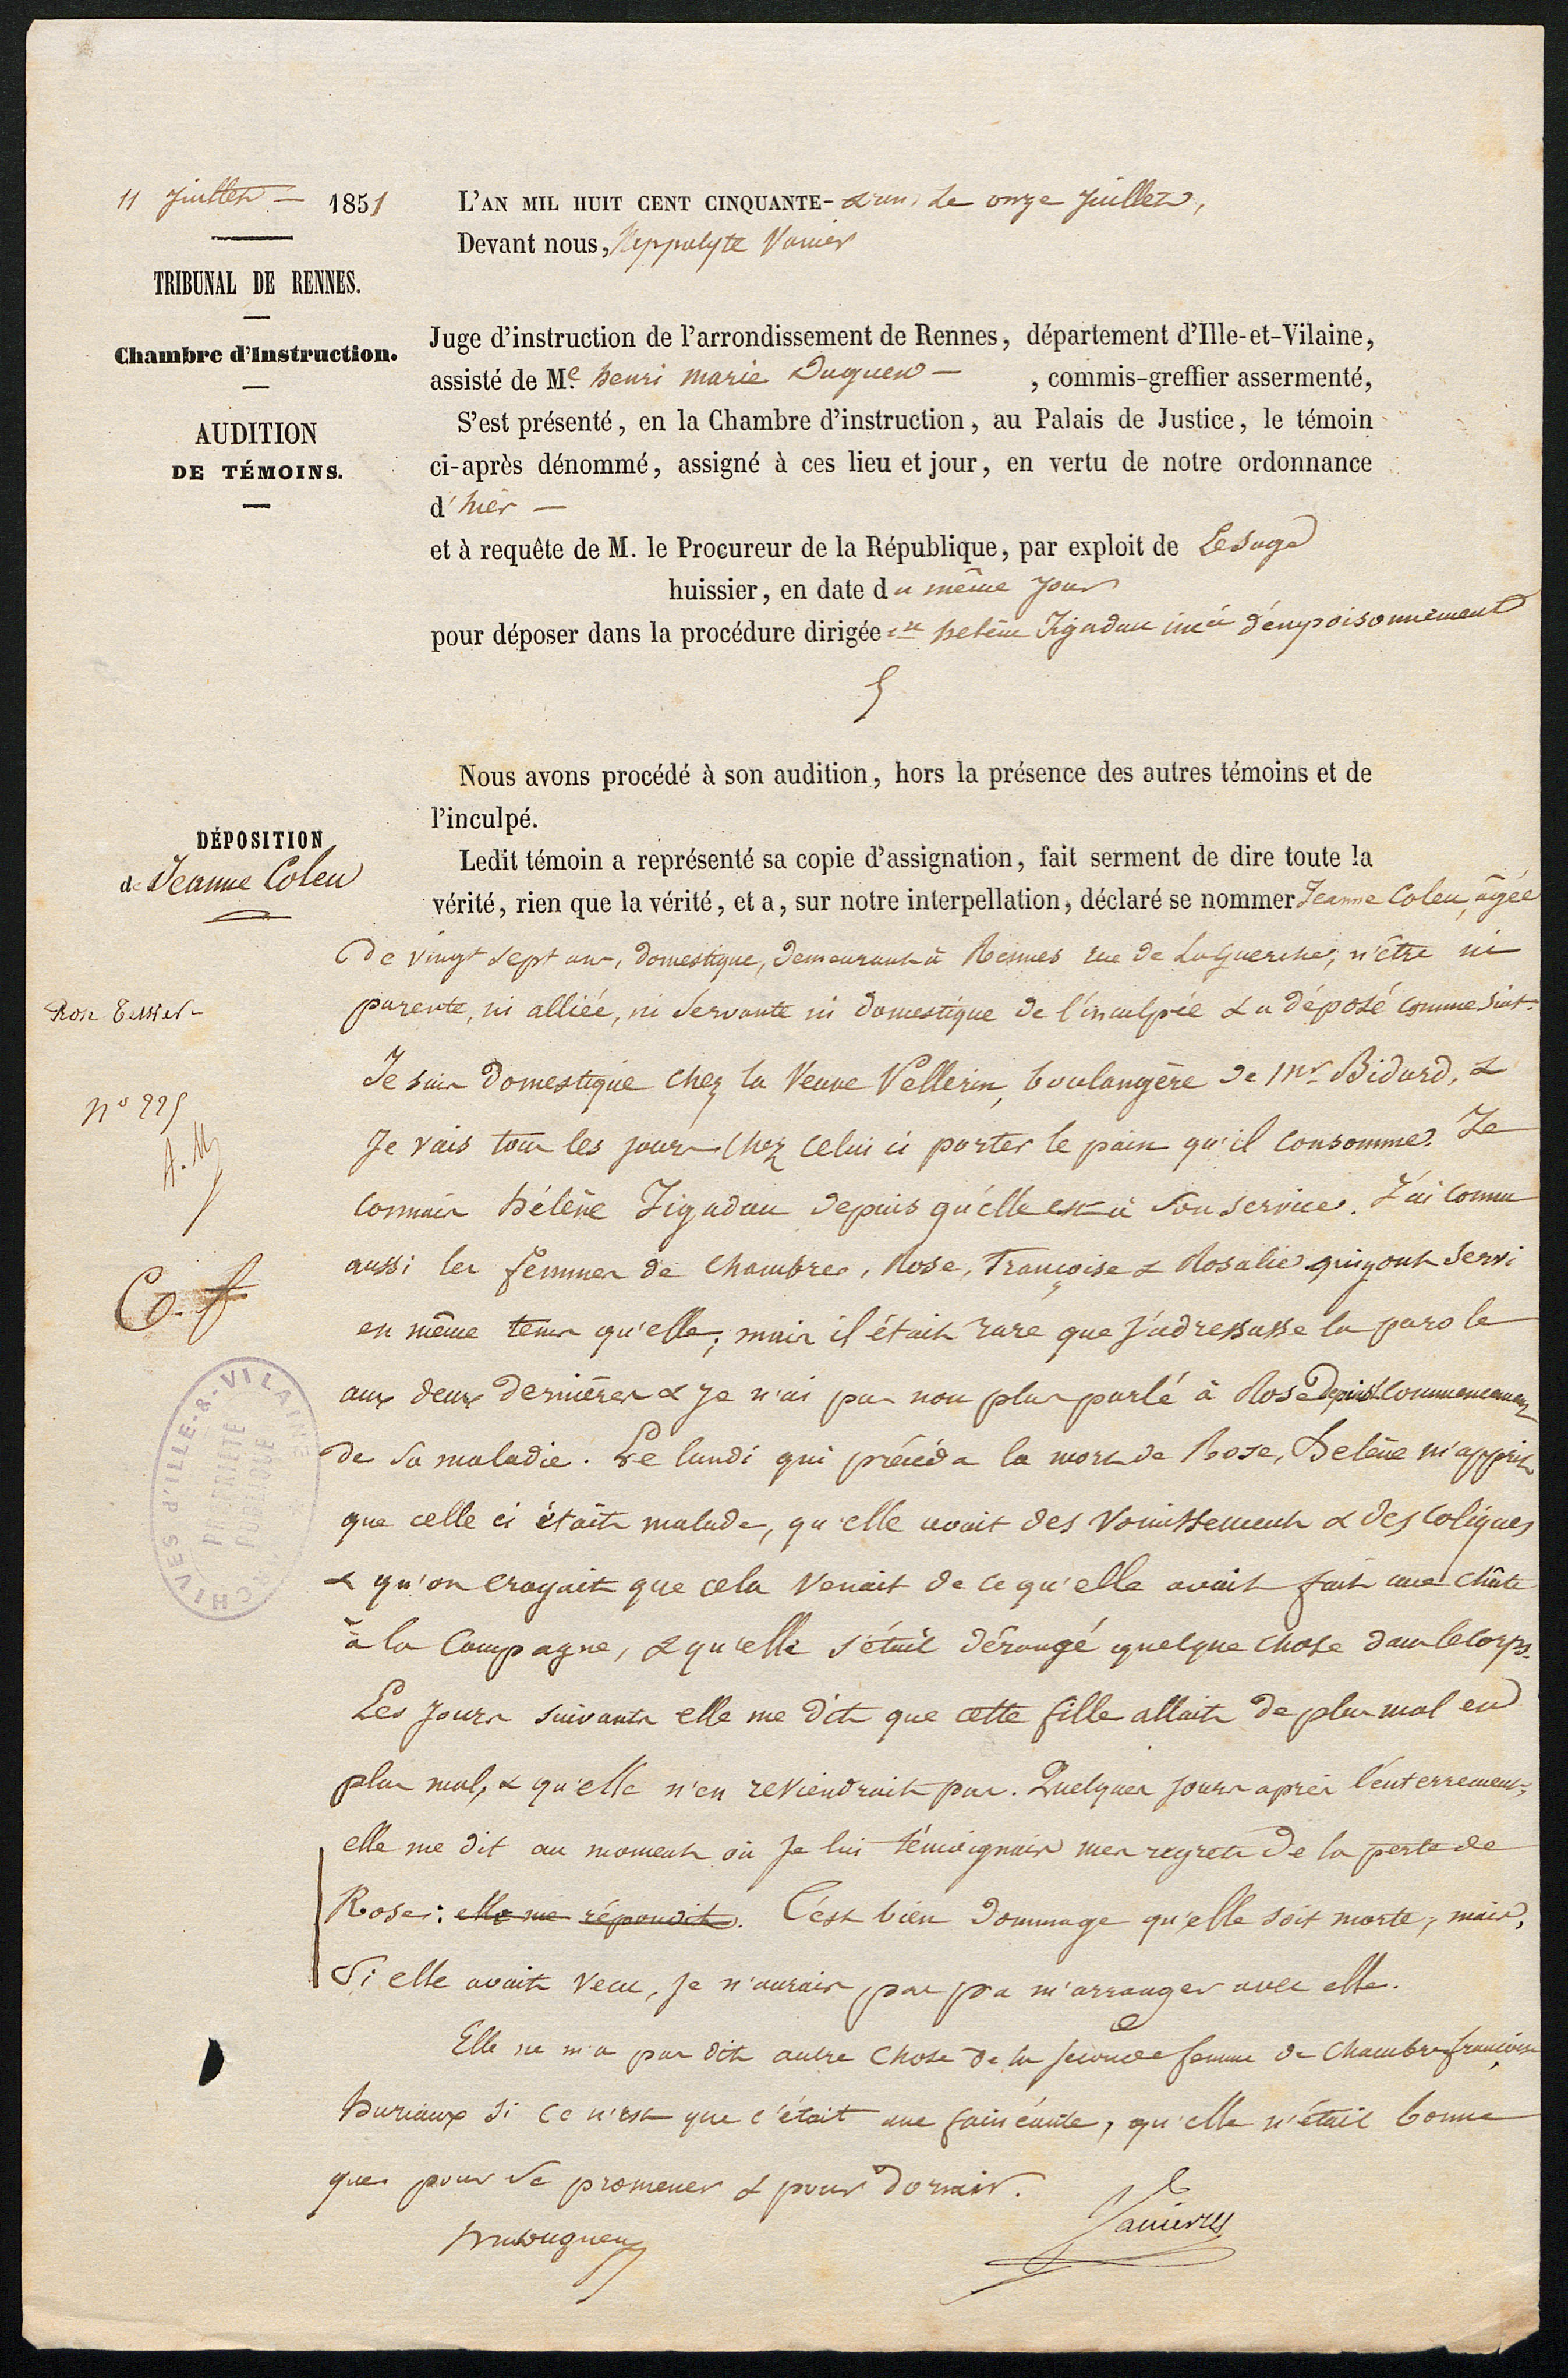 11 Juillet — 1851
TRIBUNAL DE RENNES.
Chambre d'Instruction.
AUDITION
DE TÉMOINS.
L'AN MIL HUIT CENT CINQUANTE- & un, le onze Juillet,
Devant nous, hyppolyte Vanier
Juge d'instruction de l'arrondissement de Rennes, département d'Ille-et-Vilaine,
assisté de Me henri marie Duguen — , commis-greffier assermenté,
S'est présenté, en la Chambre d'instruction, au Palais de Justice, le témoin
ci-après dénommé, assigné à ces lieu et jour, en vertu de notre ordonnance
d'hier —
et à requête de M. le Procureur de la République, par exploit de Lesage
huissier, en date du même jour
pour déposer dans la procédure dirigée cre helène Jégadau incée d'empoisonnement
Nous avons procédé à son audition, hors la présence des autres témoins et de
l'inculpé.
DÉPOSITION
de Jeanne Coleu
Ledit témoin a représenté sa copie d'assignation, fait serment de dire toute la
vérité, rien que la vérité, et a, sur notre interpellation, déclaré se nommer Jeanne Coleu, âgée
de vingt sept ans, domestique, demeurant à Rennes rue de La Guerche, n'être ni
parente, ni alliée, ni servante ni domestique de l'inculpée & a déposé comme suit.
Rose Tessier
Je suis domestique chez la Veuve Pellerin, boulangère de Mr Bidard, &
n° 225
Je vais tous les jours chez celui ci porter le pain qu'il consomme. Je
A. M
connais hélène Jégadau depuis qu'elle est à son service. J'ai connu
aussi les femmes de chambre, Rose, Françoise & Rosalie qui y ont servi
en même tems qu'elle; mais il était rare que j'adressasse la parole
aux deux dernières & je n'ai pas non plus parlé à Rose depuis le commencement
de sa maladie. Le lundi qui précéda la mort de Rose, helène m'apprit
que celle ci était malade, qu'elle avait des vomissements & des coliques
& qu'on croyait que cela venait de ce qu'elle avait fait une chûte
à la campagne, & qu'elle s'était dérangé quelque chose dans le corps.
Les jours suivants elle me dit que cette fille allait de plus mal en
plus mal, & qu'elle n'en reviendrait pas. Quelques jours après l'enterrement,
elle me dit au moment où je lui témoignais mes regrets de la perte de
Rose: elle me répondit. C'est bien dommage qu'elle soit morte, mais,
Si elle avait vecu, je n'aurais pas pu m'arranger avec elle.
Elle ne m'a pas dit autre chose de la seconde femme de chambre françoise
huriaux si ce n'est que c'était une fainéante, qu'elle n'était bonne
que pour se promener & pour dormir.
hmduguen
Vanier
ARCHIVES d'ILLE-&-VILAINE
PROPRIÉTÉ
PUBLIQUE